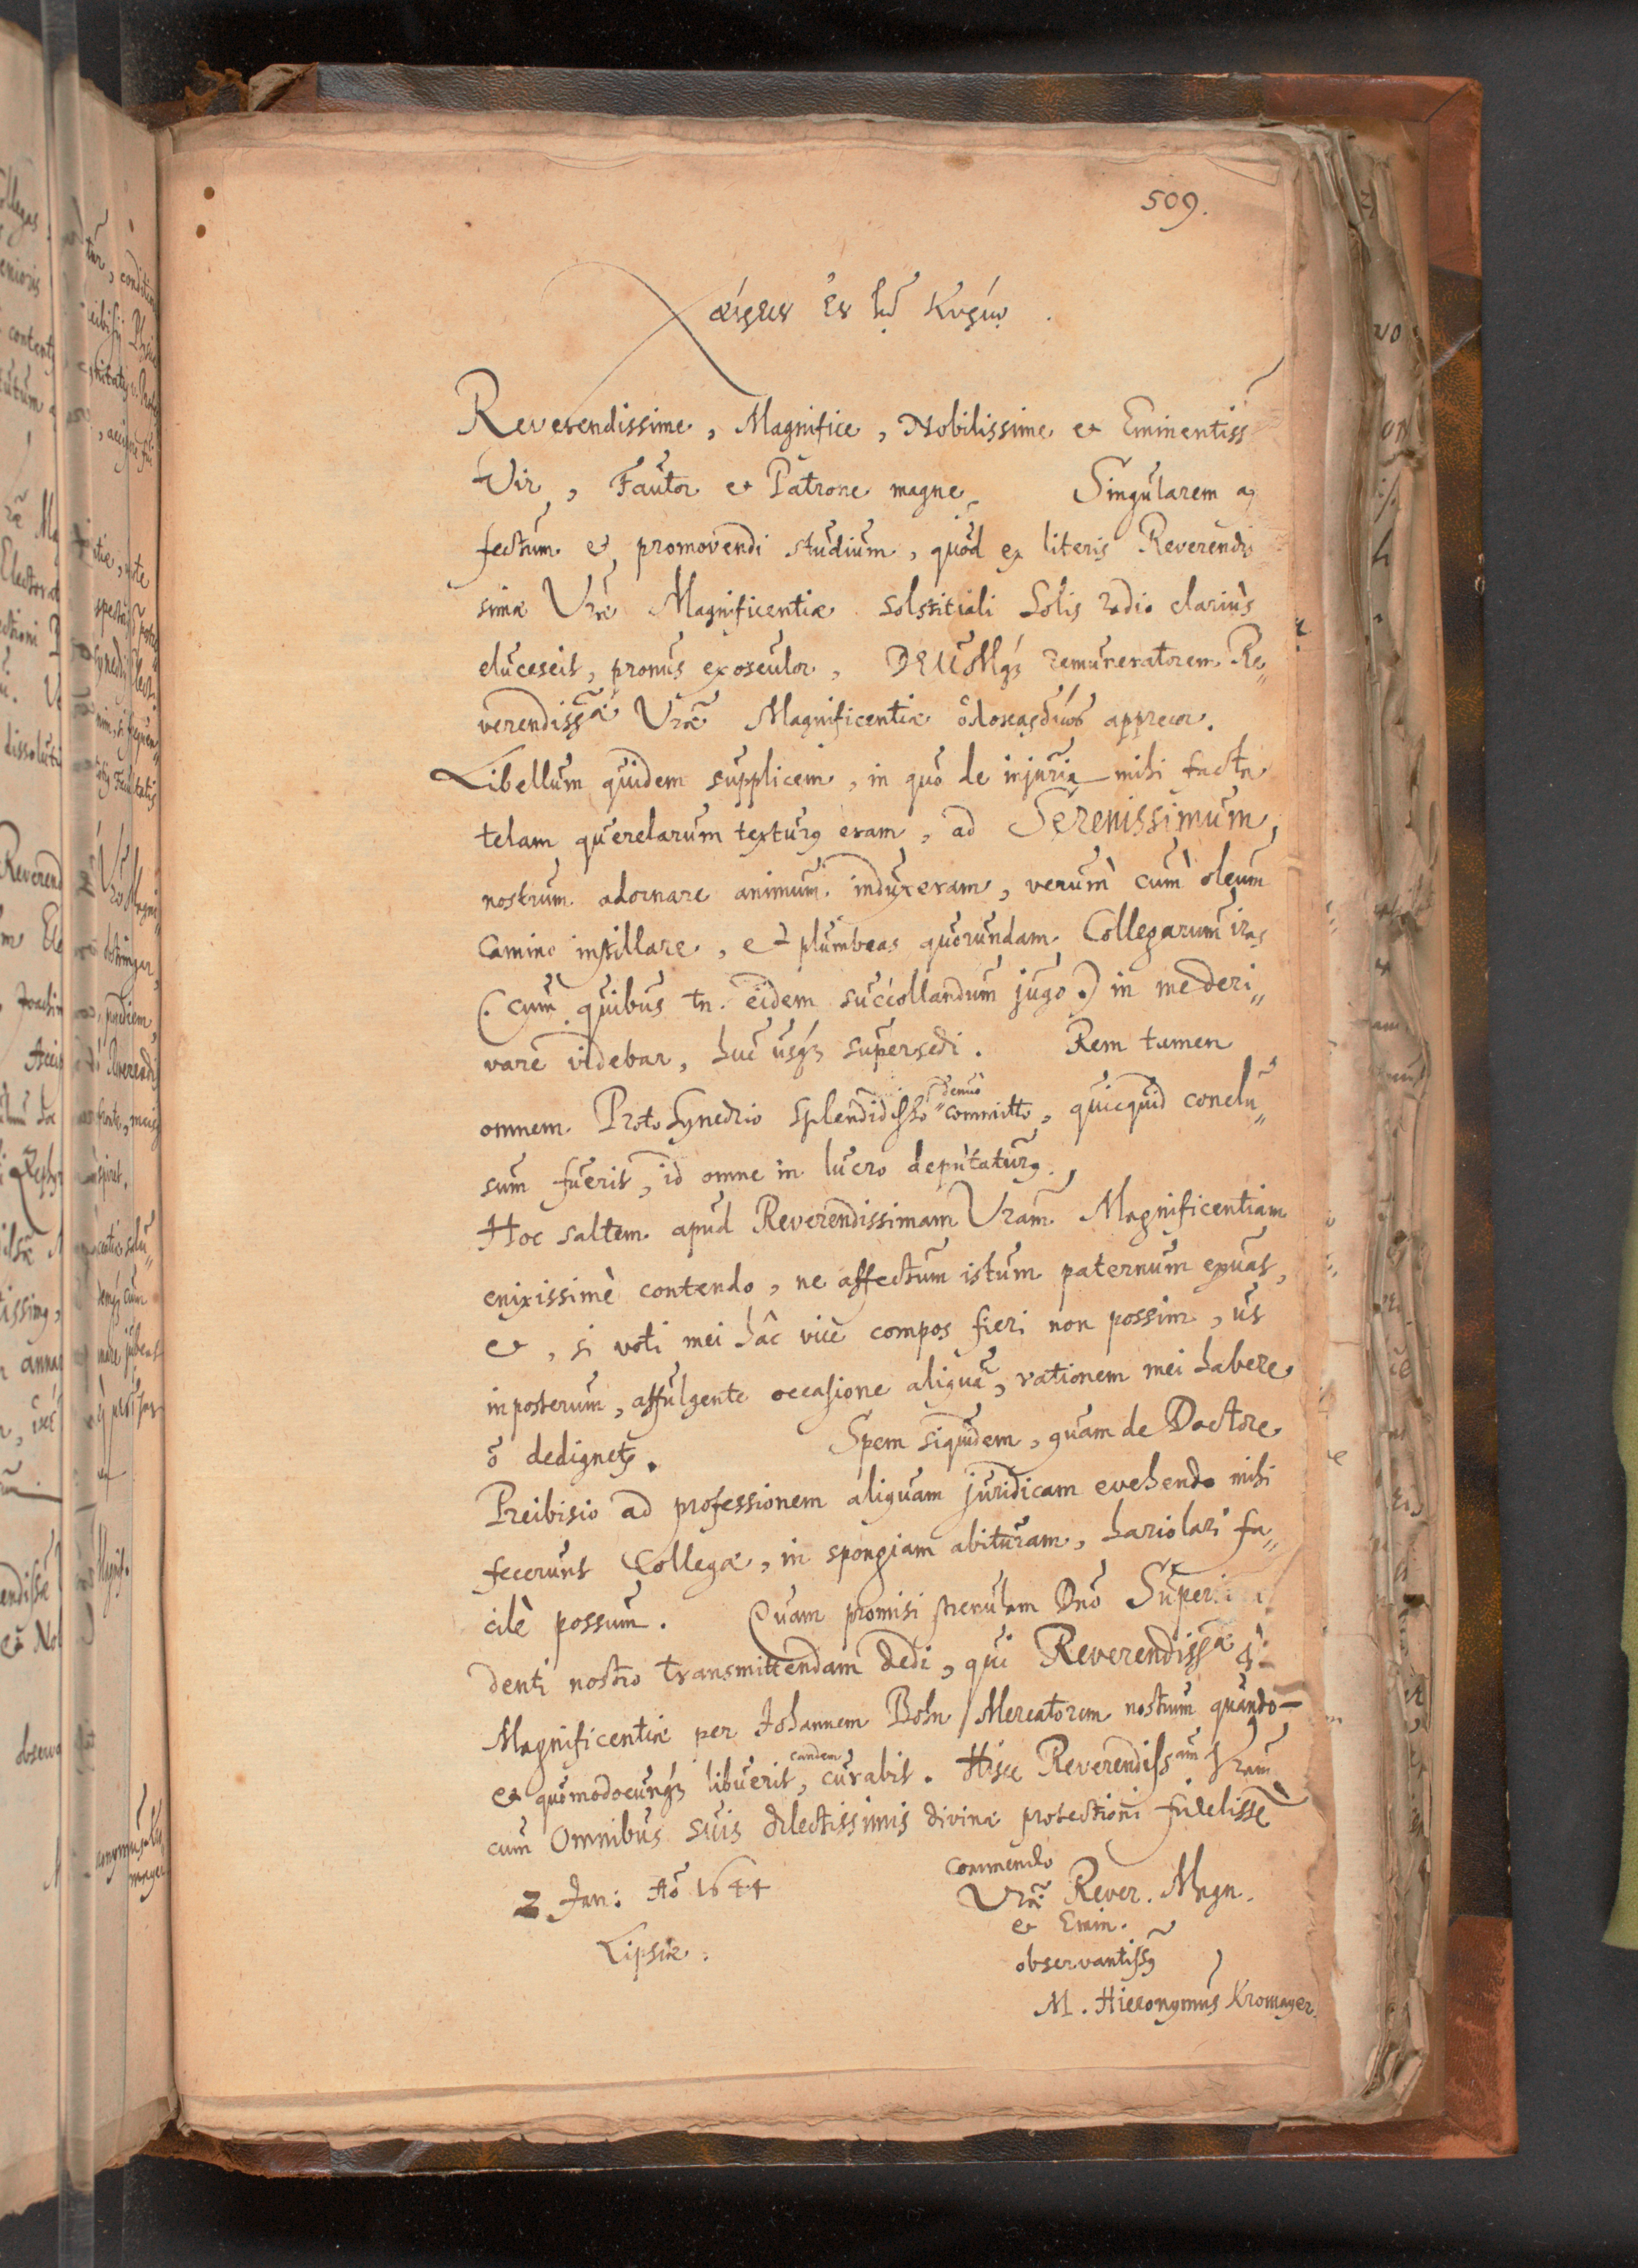 509.
Χαίρειν ἐν τῷ Κυρίῳ.
Reverendissime, Magnifice, Nobilissime et Eminentiss
Vir, Fautor et Patrone magne. Singularem af
fectum et promovendi studium, quod ex literis Reverendis
simæ Vræ Magnificentiæ solstitiali Solis radio clariùs
elucescit, pronus exosculor, DEUMq́; remuneratorem Re„
verendissæ Vræ Magnificentiæ apprecor.
Libellum quidem supplicem, in quo de injuria mihi facta
telam querelarum texturꝯ eram, ad Serenissimum,
nostrum adornare animum induxeram, verùm cùm oleum
camino instillare, et plumbeas quorundam Collegarum iras
(cum quibus tn. eidem succollandum jugo) in me deri„
vare videbar, huc usq́; supersedi. Rem tamen
omnem Proto Synedrio splendidisso denuò committo, quicquid conclu„
sum fuerit, id omne in lucro deputaturꝯ.
Hoc saltem apud Reverendissimam Vram Magnificentiam
enixissimè contendo, ne affectum istum paternum exuas,
et, si voti mei hâc vice compos fieri non possim, ut
imposterum, affulgente occasione aliquâ, rationem mei habere
ō dedignetꝫ. Spem siquidem, quam de Doctore
Preibisio ad professionem aliquam juridicam evehendo mihi
fecerunt Collegæ, in spongiam abituram, hariolari fa„
cilè possum. Quam promisi strenulam Dnō Superin
denti nostro transmittendam dedi, qui Reverendissæ
Magnificentiæ per Johannem Bohn / Mercatorem nostrum quando-
et quomodocunq́; libuerit, eandem curabit. Hisce Reverendissam Vram
cum Omnibus suis dilectissimis divinæ protectioni fidelissē
commendo
2 Jan: Aō 1644
Lipsiæ.
Vræ Rever. Magn.
et Emin.
observantissꝯ
M. Hieronymus Kromayer.